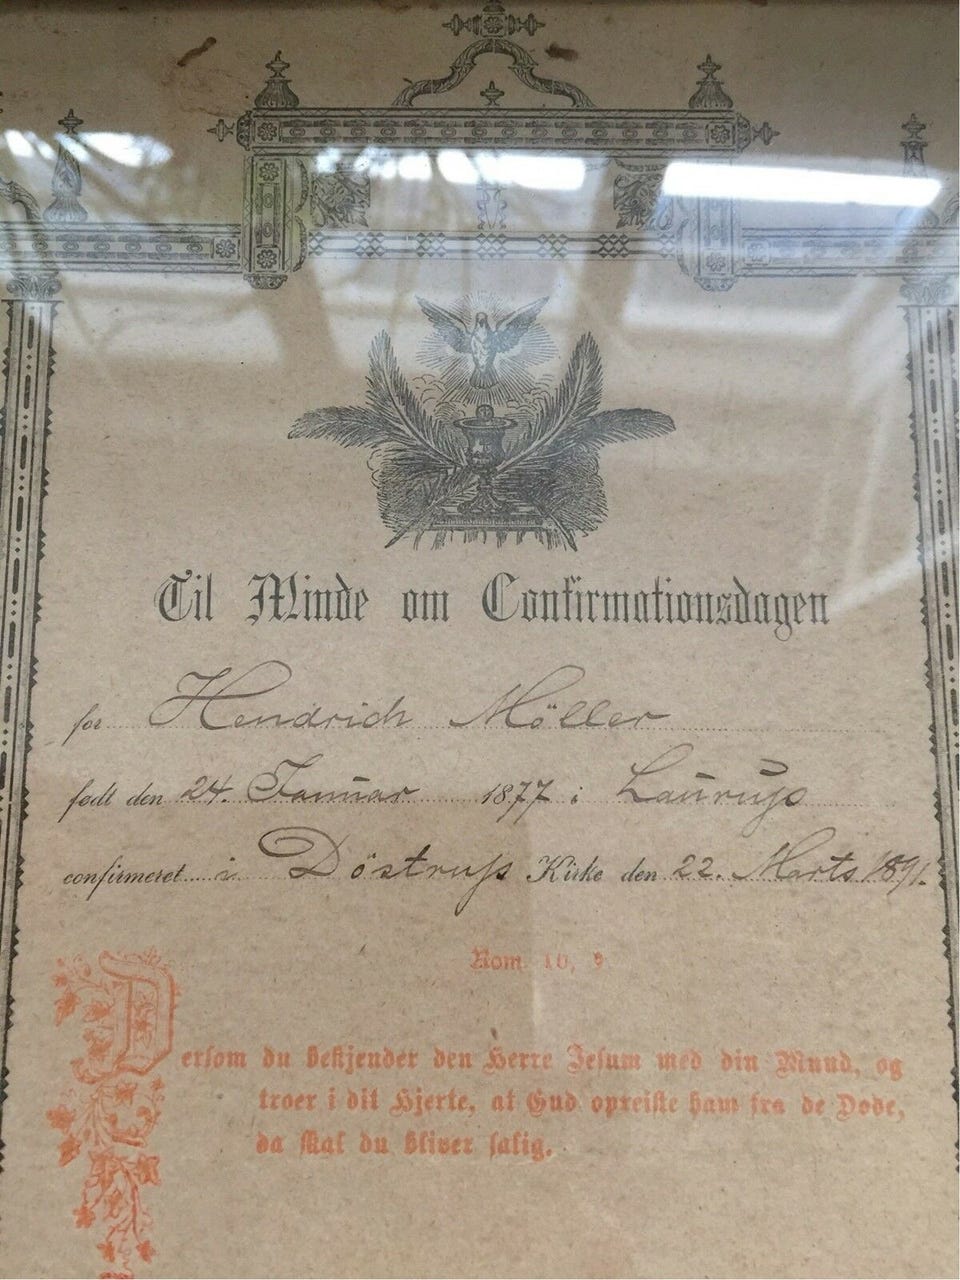 Til Minde om Confirmationsdagen
for Hendrich Möller
født den 24. Januar 1877 i Laurup
confirmeret i Döstrup Kirke den 22. Marts 1891.
Rom. 10, 9
Dersom du bekjender den Herre Jesum med din Mund, og
troer i dit Hjerte, at Gud opreiste ham fra de Døde,
da skal du bliver salig.